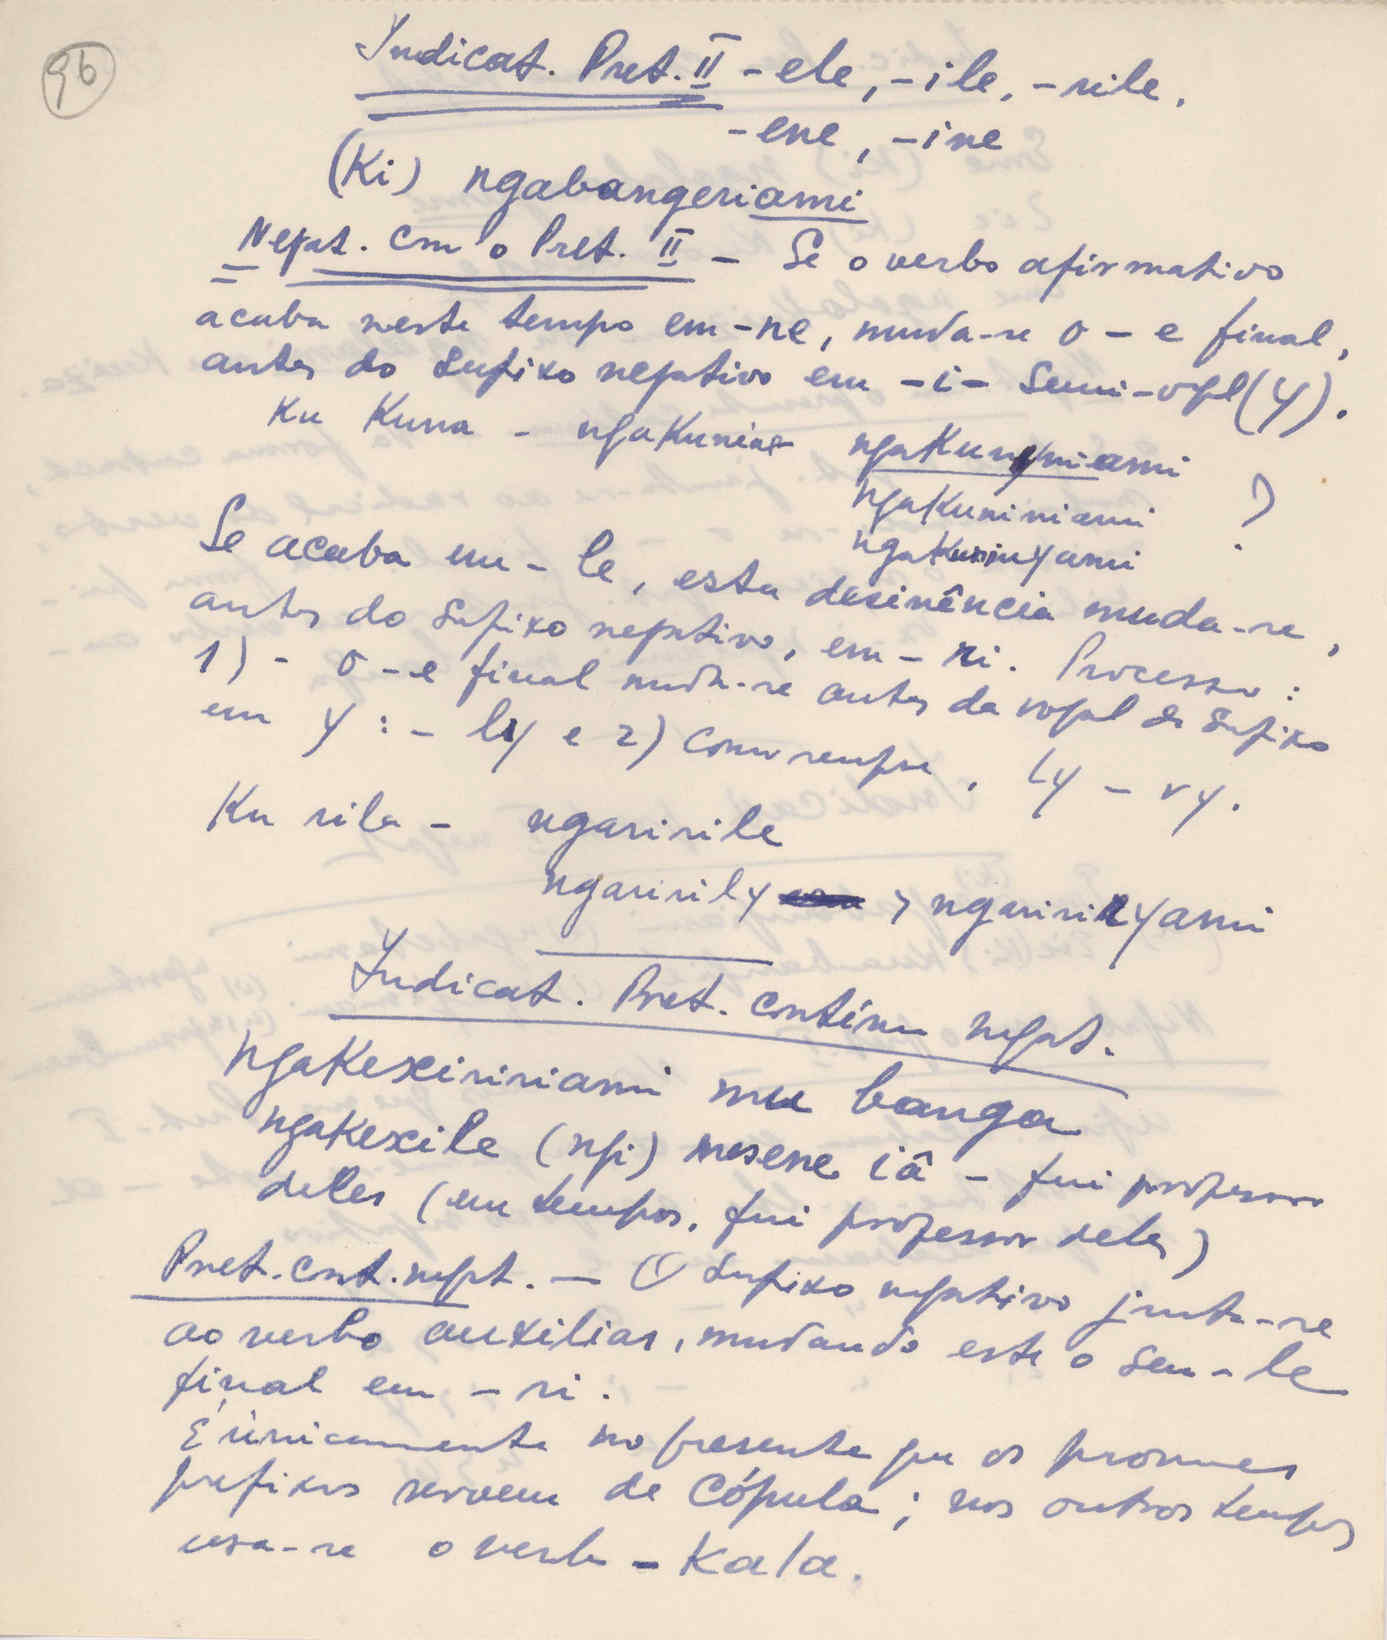 96
Indicat. Pret. II -ele, -ile, -rile,
-ene, -ine
(Ki) ngabangeriami
Negat. com o Pret. II - Se o verbo afirmativo
acaba neste tempo em -ne, muda-se o -e final,
antes do sufixo negativo em -i- semi-vogal (y).
Ku Kuna -
ngaKuniniami ?
Se acaba em -le, esta desinência muda-se,
antes do sufixo negativo, em -ri. Processo:
1) - o -e final muda-se antes da vogal do sufixo
em y: - ly e 2) como sempre, ly - ry.
Ku rila - ngaririle
ngaririly > ngaririryami
Indicat. Pret. contínuo negat.
ngaKexiririami mu banga
ngaKexile (ngi) mesene iâ - fui professor
deles (em tempos, fui professor deles)
Pret. cont. negat. - O sufixo negativo junta-se
ao verbo auxiliar, mudando este o seu -le
final em -ri.
É únicamente no presente que os pronomes
prefixos servem de cópula; nos outros tempos
usa-se o verbo - Kala.